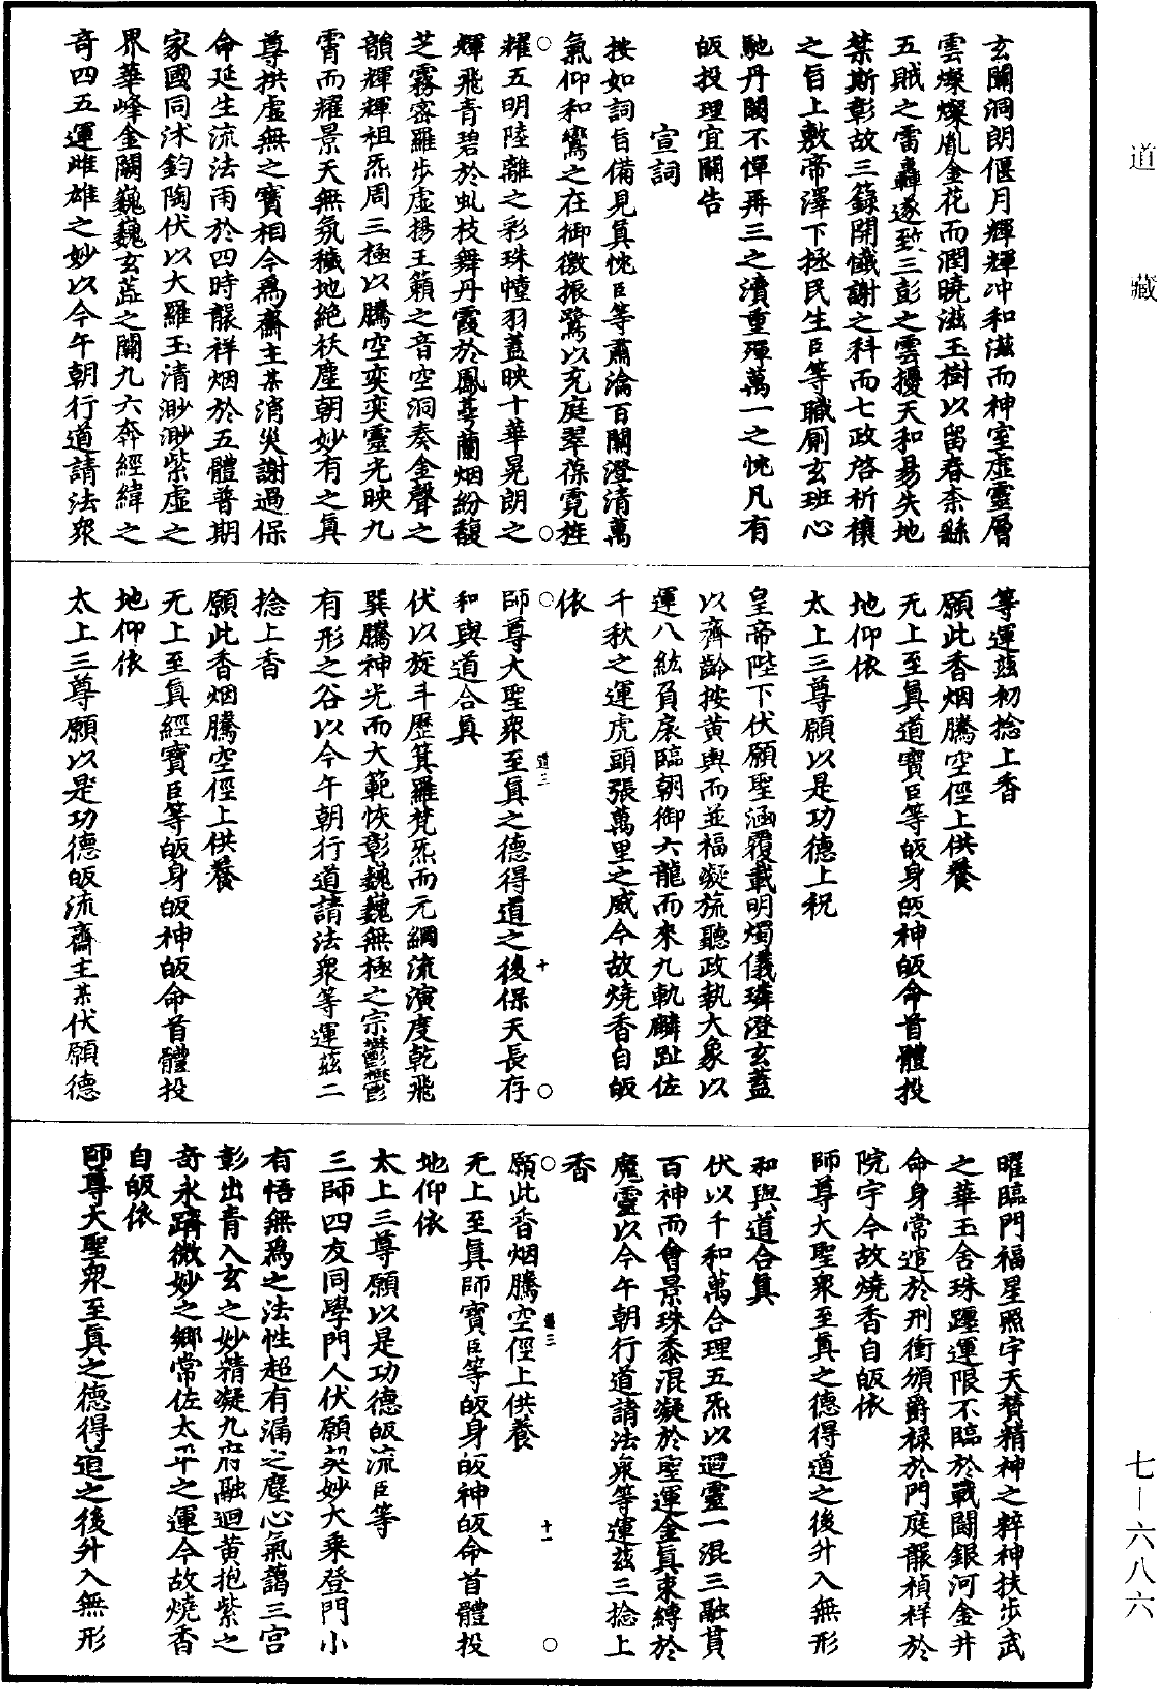 道藏
玄關洞朗偃月輝輝冲和滋而神室虛靈層
雲燦燦胤金花而潤曉滋玉樹以留春柰緣
五賊之雷轟遂致三彭之雲擾天和易失地
禁斯彰故三籙開懺謝之科而七政啓祈禳
之旨上敷帝澤下拯民生臣等職厠玄班心
馳丹闕不憚再三之瀆重殫萬一之忱凡有
皈投理宜關告
宣詞
按如詞旨備見真忱臣等肅淪百關澄清萬
氣仰和鸞之在御徽振鷺以充庭翠葆霓旌
耀五明陸離之彩珠幢羽蓋映十華晃朗之
輝飛青碧於虬枝舞丹霞於鳳蕚蘭烟紛馥
芝霧密羅步虛揚玉籟之音空洞奏金聲之
韻輝輝祖炁周三極以騰空奕奕靈光映九
霄而耀景天無氛穢地絶袄塵朝妙有之真
尊拱虛無之寶相今爲齋主某消災謝過保
命延生流法雨於四時靄祥烟於五體普期
家國同沐鈞陶伏以大羅玉清渺渺紫虛之
界華峰金闕巍巍玄蕋之關九六奔經緯之
奇四五運雌雄之妙以今午朝行道請法衆
等運兹初捻上香
願此香烟騰空徑上供養
无上至真道寶臣等皈身皈神皈命首體投
地仰依
太上三尊願以是功德上祝
皇帝陛下伏願聖涵覆載明燭儀璘澄玄蓋
以齊齡按黄輿而並福凝旒聽政執大象以
運八紘負扆臨朝御六龍而來九軌麟趾佐
千秋之運虎頭張萬里之威今故燒香自皈
依
師尊大聖衆至真之德得道之後保天長存
和與道合真
伏以旋斗歷箕羅梵炁而元綱流演度乾飛
巽騰神光而大範恢彰巍巍無極之宗鬱鬱
有形之谷以今午朝行道請法衆等運兹二
捻上香
願此香烟騰空徑上供養
无上至真經寶臣等皈身皈神皈命首體投
地仰依
太上三尊願以是功德皈流齋主某伏願德
曜臨門福星照宇天替精神之粹神扶步武
之華玉舍珠躔運限不臨於戰鬪銀河金井
命身常逭於刑衝頒爵禄於門庭靄禎祥於
院宇今故燒香自皈依
師尊大聖衆至真之德得道之後升入無形
和與道合真
伏以千和萬合理五炁以迴靈一混三融貫
百神而會景珠黍混凝於聖運金真束縛於
魔靈以今午朝行道請法衆等運兹三捻上
香
願此香烟騰空徑上供養
无上至真師寶臣等皈身皈神皈命首體投
地仰依
太上三尊願以是功德皈流臣等
三師四友同學門人伏願契妙大乘登門小
有悟無爲之法性超有漏之塵心氣藹三宫
彰出青入玄之妙精凝九府融迴黄抱紫之
奇永躋微妙之鄉常佐太平之運今故燒香
自皈依
師尊大聖衆至真之德得道之後升入無形
道三 十
道三 十一
七—六八六